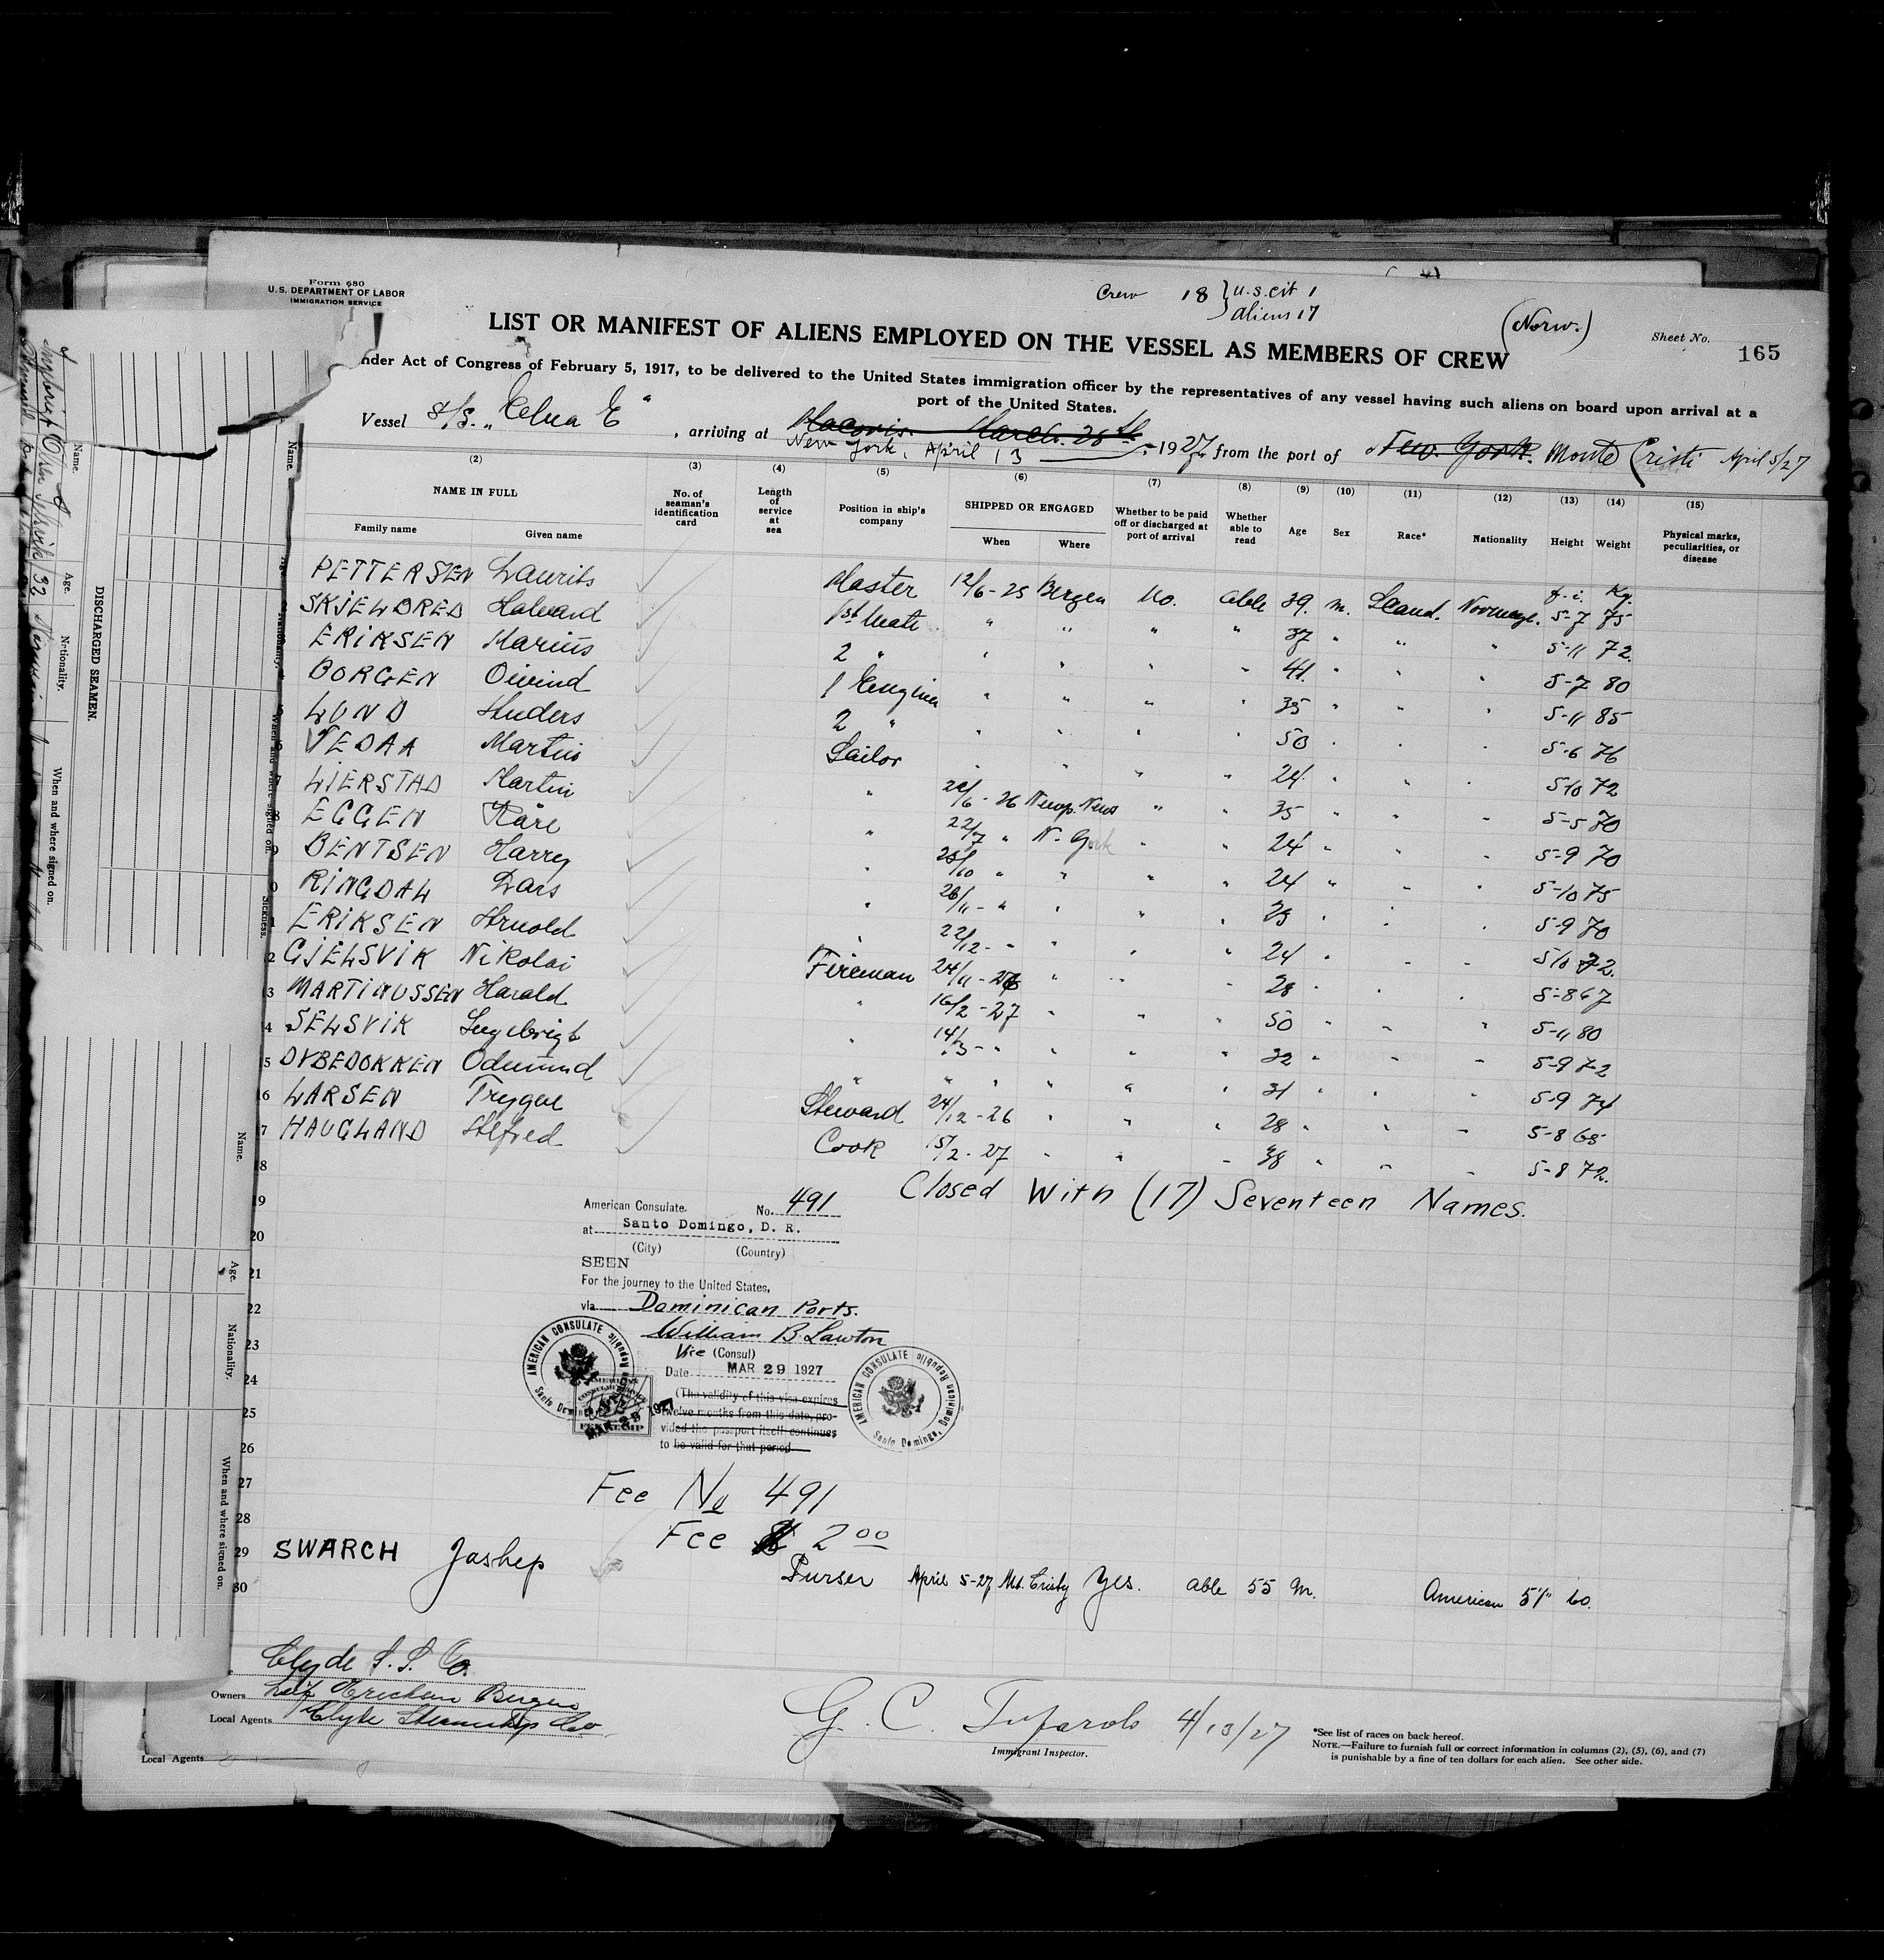 Form 680
U.S. DEPARTMENT OF LABOR
IMMIGRATION SERVICE
Crew 18 } U.S. cit 1
aliens 17
(Norw.)
Sheet No. 165
LIST OR MANIFEST OF ALIENS EMPLOYED ON THE VESSEL AS MEMBERS OF CREW
nder Act of Congress of February 5, 1917, to be delivered to the United States immigration officer by the representatives of any vessel having such aliens on board upon arrival at a
port of the United States.
Vessel S/S. , arriving at March 28th 1927 from the port of New York. Monte Cristi April 5/27
New York, April 13
(2) (3) (4) (5) (6) (7) (8) (9) (10) (11) (12) (13) (14) (15)
NAME IN FULL
Family name Given name
No. of seaman's identification card
Length of service at sea
Position in ship's company
SHIPPED OR ENGAGED
When Where
Whether to be paid off or discharged at port of arrival
Whether able to read
Age
Sex
Race*
Nationality
Height
Weight
Physical marks, peculiarities, or disease
f. i. Kg.
PETTERSEN Laurits Master 12/6-25 Bergen No. able 39. m. Scand. 5-7 75
SKJELDRED Halvard 1st Mate " " " " 37 " " " 5-11 72.
ERIKSEN Marius 2 " " " " " 41. " " " 5-7 80
BORGEN Oivind 1 Engineer " " " " 35 " " " 5-11 85
LUND Anders 2 " " " " " 50 " " " 5-6 76
VEDAA Martin Sailor " " " " 24. " " " 5-10 72
LIERSTAD Martin " 26 Newp. News " " 35 " " " 5-5 70
EGGEN Kåre " 22/7 " N. York " " 24 " " " 5-9 70
BENTSEN Harry " 25/10 " " " " 24 " " " 5-10 75
RINGDAL Lars " 26/11 - " " " " " " " 5-9 70
ERIKSEN Arnold " 22/12 - " " " " 24 " " " 5-10 72.
GJELSVIK Nikolai Fireman 24/11 - 26 " " " 28 " " " 5-8 67
MARTINUSSEN Harald " 16/2 - 27 " " " 50 " " " 5-11 80
SELSVIK Ingebrigt " 14/3 - " " " " 32 " " " 5-9 72
DYBEDOKKEN Odmund " " " " " " 31 " " " 5-9 74
LARSEN Trygve Steward 24/12 - 26 " " " 28 " " " 5-8 68
HAUGLAND Alfred Cook 15/2 - 27 " " " 38 " " " 5-8 72.
Closed With (17) Seventeen Names.
American Consulate. No. 491
at Santo Domingo, D. R.
(City) (Country)
SEEN
For the journey to the United States,
via Dominican Ports.
William B. Lawton
Vice (Consul)
Date MAR 29 1927
(The validity of this visa expires
twelve months from this date, pro-
vided the passport itself continues
to be valid for that period.
AMERICAN CONSULATE Santo Domingo, Dominican Republic
AMERICAN CONSULATE Santo Domingo, Dominican Republic
MAR 29 1927
Fee No 491
Fee $ 2 00
SWARCH Joshep Purser April 5-27 Mt. Cristy Yes. able 55 m. American
18
19
20
21
22
23
24
25
26
27
28
29
30
Clyde S. S. Co.
Owners
Local Agents Clyde Steamship Co
Local Agents
G. C. 4/13/27
Immigrant Inspector.
*See list of races on back hereof.
NOTE.—Failure to furnish full or correct information in columns (2), (5), (6), and (7)
is punishable by a fine of ten dollars for each alien. See other side.
DISCHARGED SEAMEN.
Name. Age. Nationality. When and where signed on.
Name. Age. Nationality. When and where signed on. Sickness.
Name. Age. Nationality. When and where signed on.